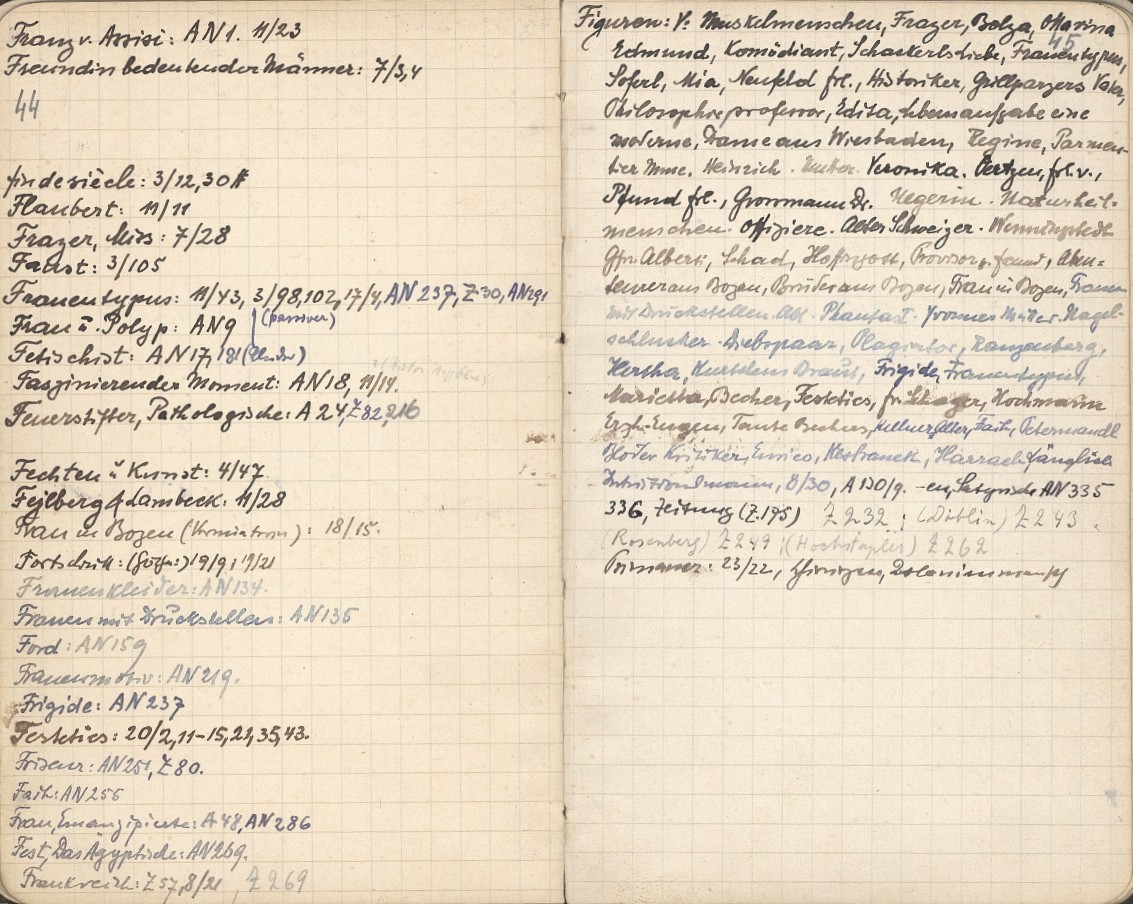 Franz v. Assisi: AN1. 11/23
Freundin bedeutender Männer: 7/3,4
44
fin de siècle: 3/12,30
Flaubert: 11/11
Frazer, Miss: 7/28
Faust: 3/105
Frauentypus: 11/43, 3/98,102,17/4, AN 237, Z 30, AN291
Frau u. Polyp: AN9 (passiver)
Fetischist: AN17, 181
Faszinierender Moment: AN18, 11/14.
Feuerstifter, Pathologische: A 24, Z 82, 216
Fechten u Kunst: 4/47.
Fejlberg & Lambeck: 11/28
Frau in Bozen : 18/15.
Fortschritt: 19/9; 19/21
Frauenkleider: AN134.
Frauen mit Druckstellen: AN135
Ford: AN159
Frauenmotiv: AN219.
Frigide: AN237
Festetics: 20/2,11-15,22,35,43.
Friseur: AN251, Z80.
AN256
Frau, Emanzipierte: A 48, AN286
Fest, Das Ägyptische: AN269.
Frankreich: Z57, 8/21 Z 269
45
Figuren: V: Muskelmenschen, Frazer, Bolza, Ottavina
Edmund, Komödiant, Schackerlsliebe, Frauentypus,
Soferl, Mia, Neufeld frl., Historiker, Grillparzers Vater,
Philosophieprofessor, Edita, Lebensaufgabe eine
moderne, Dame aus Wiesbaden, Regine, Parmen-
tier Mme. Heinrich. Mutter. Veronika. Oertzen, frl. v.,
Pfund frl., Grossmann Dr. Negerin. Naturheil-
menschen. Offiziere. Alter Schweizer. Wenningstedt
Gfn Alberti, Schad, Provisor, Aben-
teurer aus Bozen, Brüder aus Bozen, Frau in Bozen, Frauen
mit Druckstellen. Alt. Phantast. Yvonnes Mutter. Nagel-
schlucker. Diebspaar, Plagiator, Ranzenberg,
Hertha, Kurtdens Braut, Frigide, Frauentypus,
Marietta, Becher, Festetics, Hochmann
Erzh. Eugen, Tante Bechers, Kellner, Alter, Petermandl
Kritiker, Enrico, Harrach
8/30, A 130/9. -en, Satyrische AN 335
336, Zeitung (Z.175) Z 232; (Döblin) Z 243.
(Rosenberg) Z 249; (Hochstapler) Z 262
Primaner: 23/22,